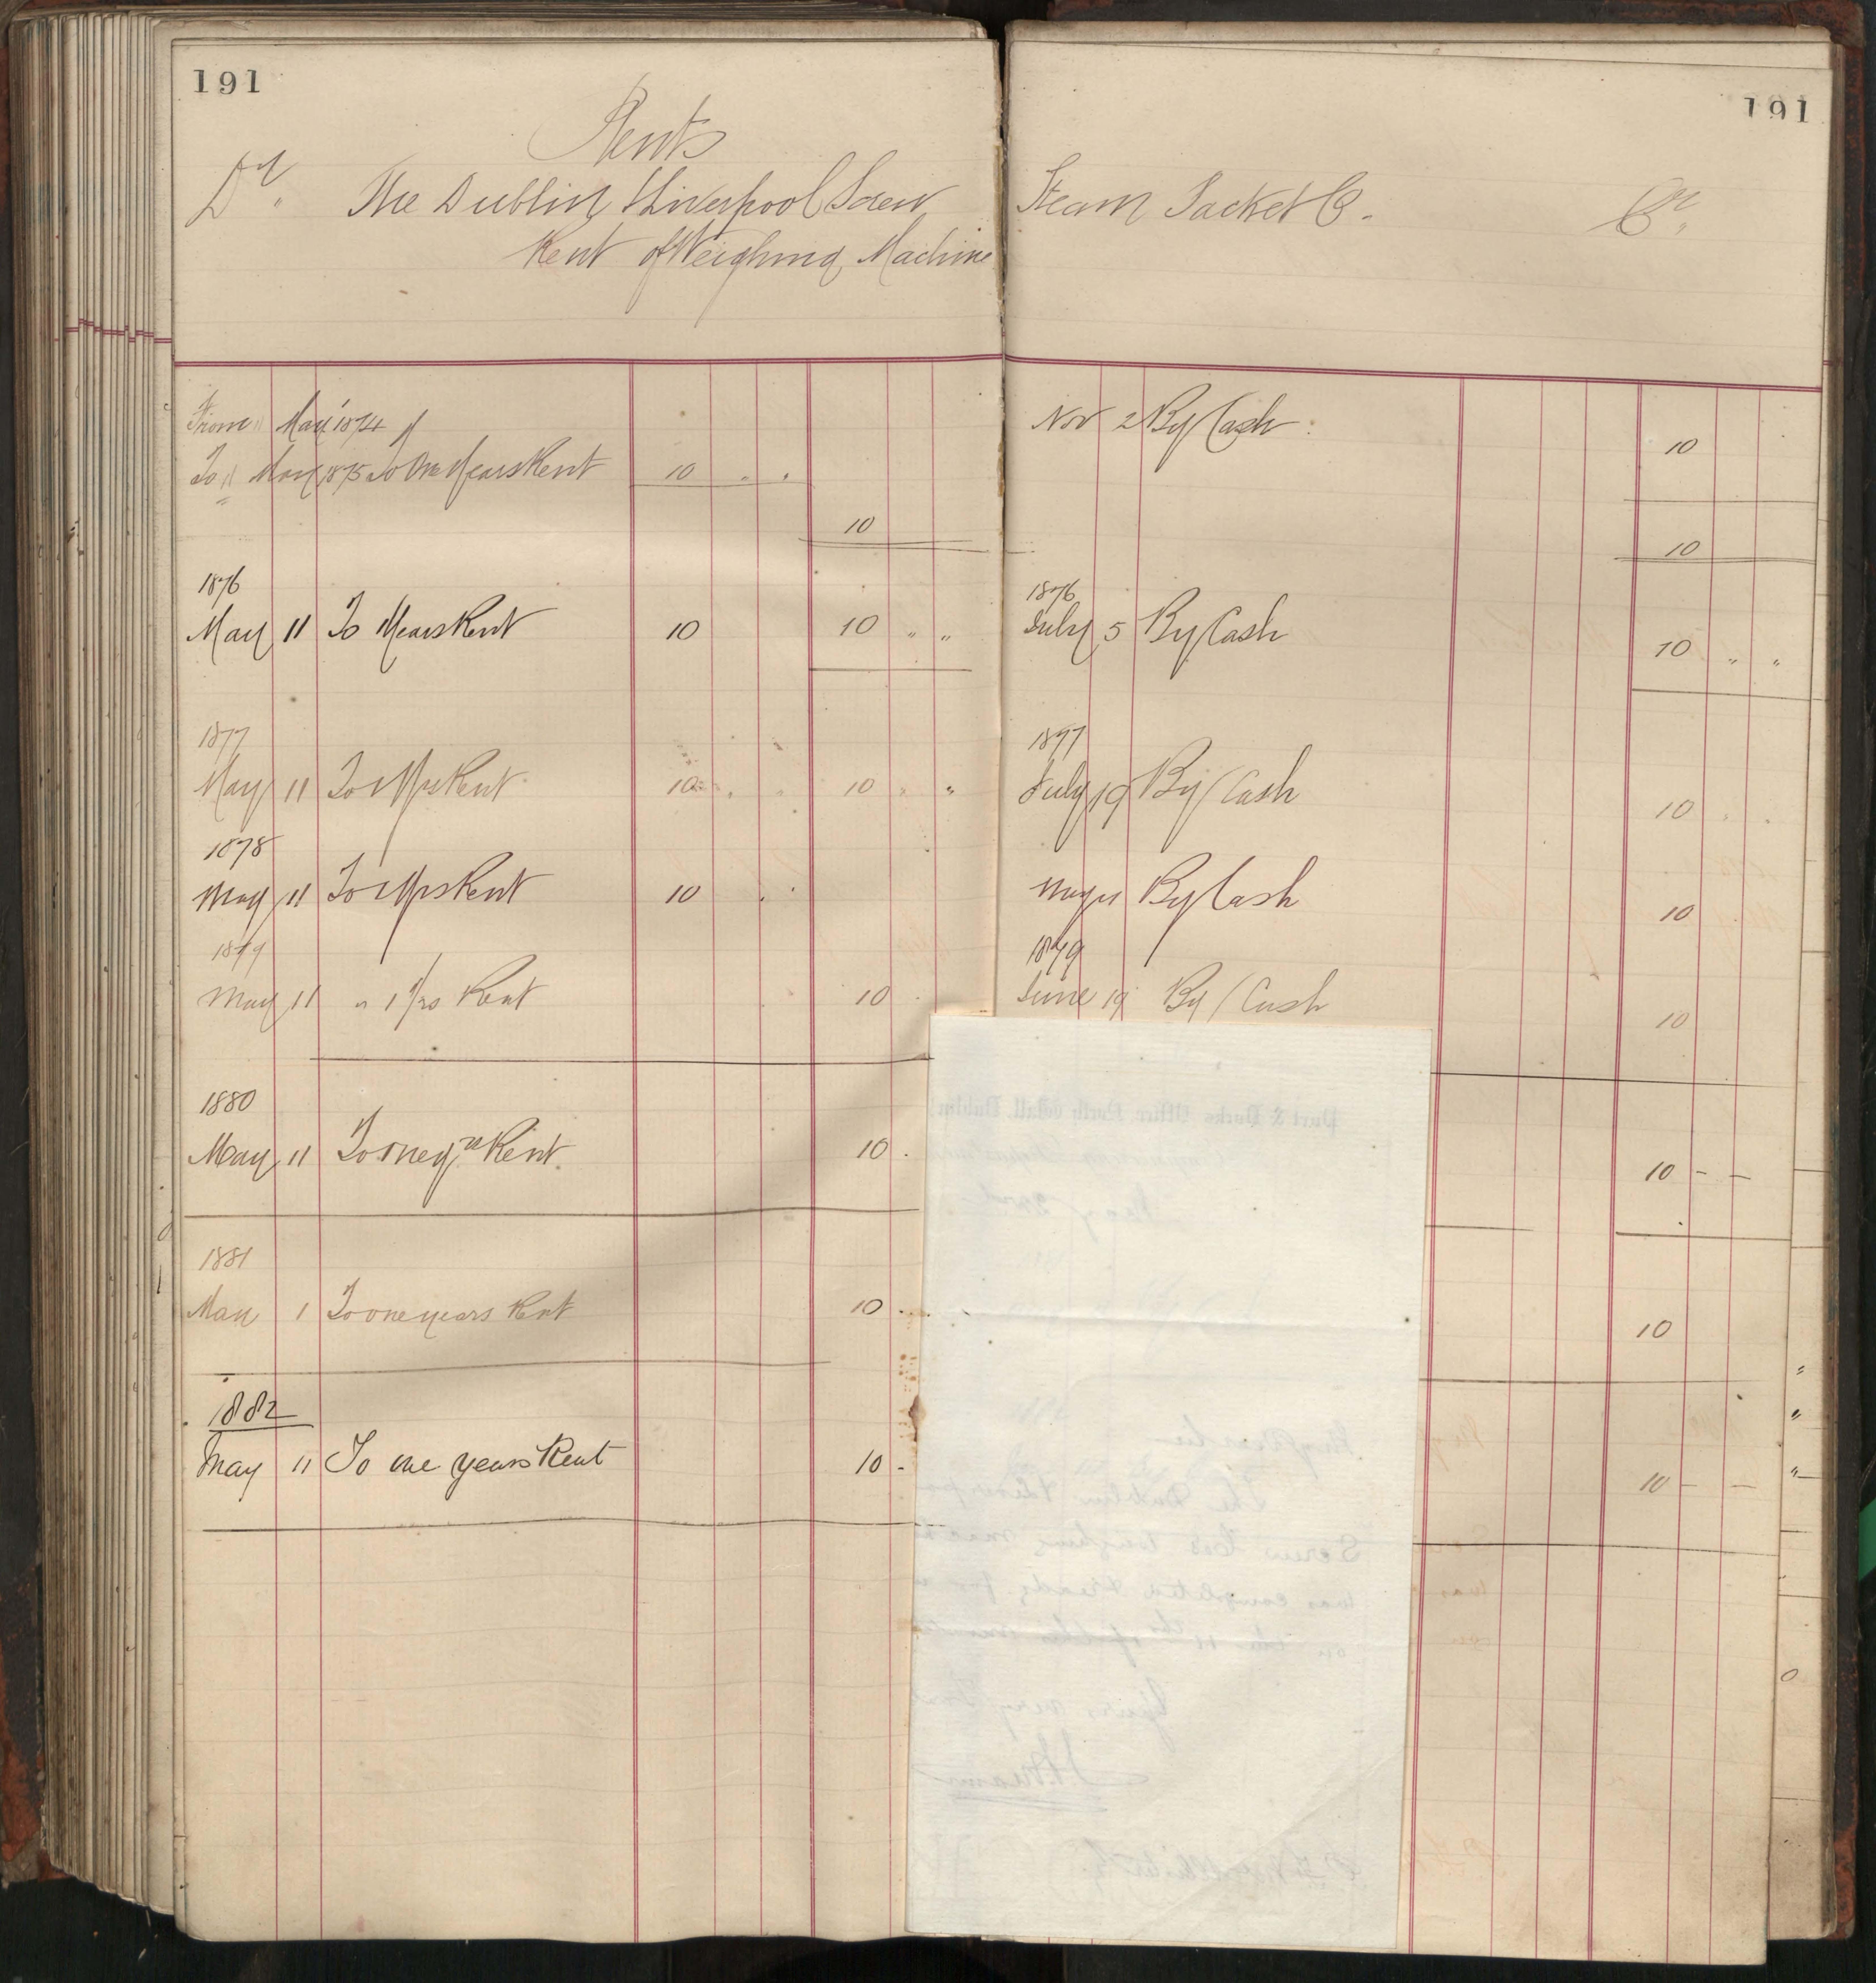 191
Rents
Dr. The Dublin & Liverpool Screw
Rent of Weighing Machine
From 11 May 1874
To 11 May 1875 To One Years Rent 10 " "
10
1876
May 11 To 1 Years Rent 10 10 " "
1877
May 11 To 1 Yrs Rent 10 " " 10 " "
1878
May 11 To 1 Yrs Rent 10
1879
May 11 " 1 Yrs Rent 10
1880
May 11 To one yrs Rent 10
1881
May 1 To one years Rent 10
1882
May 11 To one years Rent 10 -
191
Steam Packet Co. Cr.
Nov 2 By Cash 10
10
1876
July 5 By Cash 10 " "
1877
July 19 By Cash 10 " "
May 11 By Cash 10
1879
June 19 By Cash 10
10 - -
10
10 - -
Port & Docks Office, North Wall, Dublin
The Dublin & Liverpool
Screw Cos weighing
was completed & ready for
on the of this month
Yours very